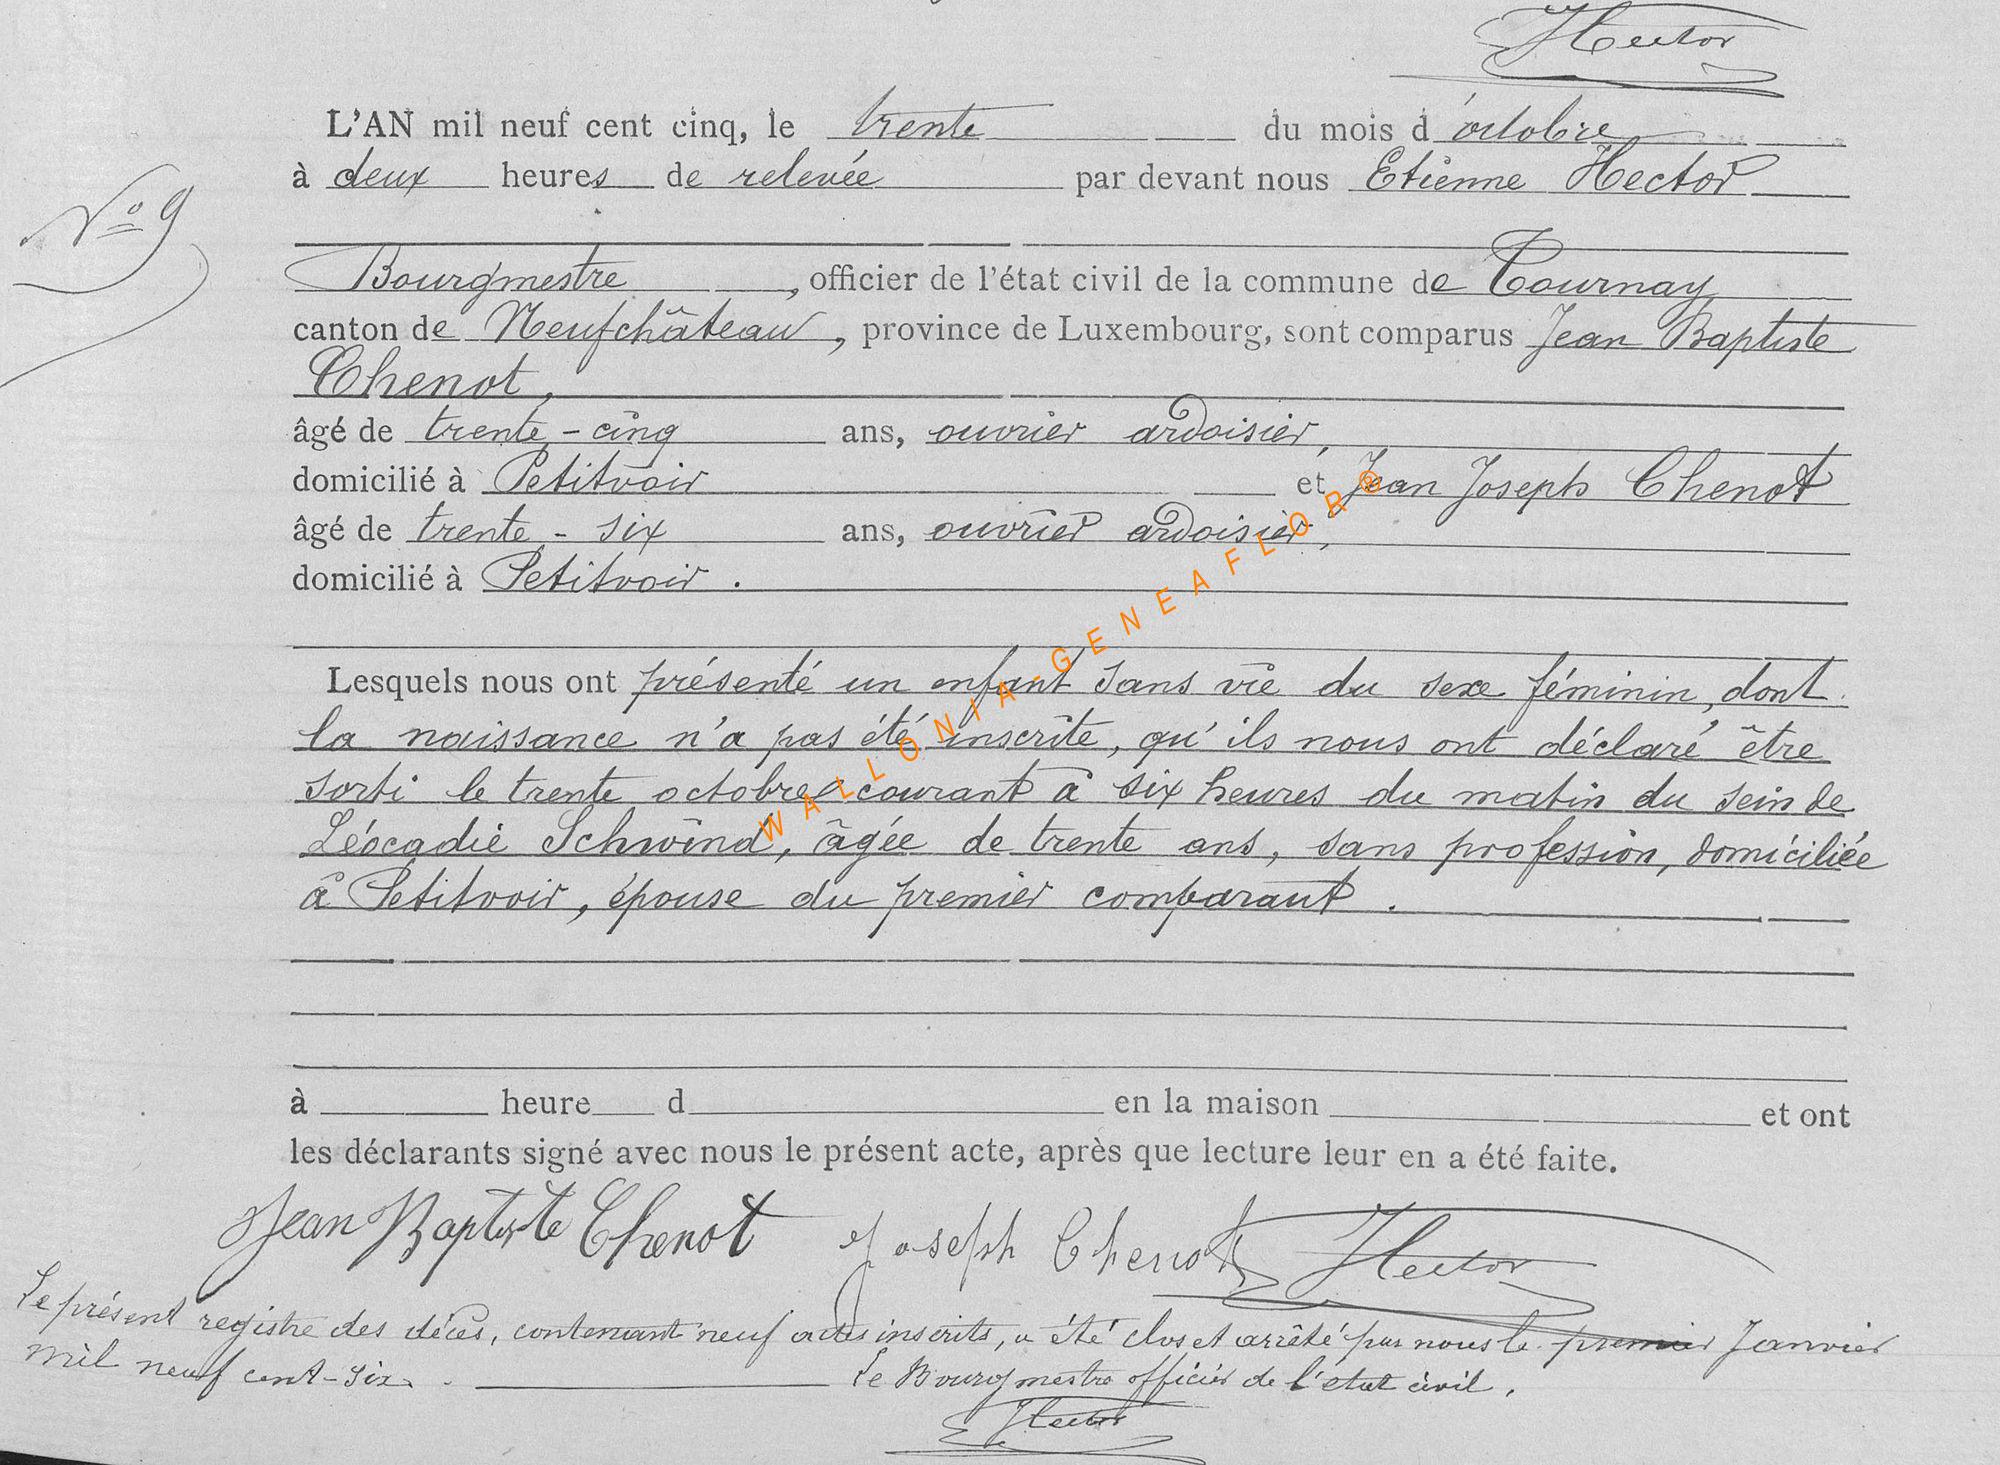 Hector
L'AN mil neuf cent cinq, le trente du mois d'octobre
à deux heures de relevée par devant nous Etienne Hector
N° 9
Bourgmestre, officier de l'état civil de la commune de Tournay
canton de Neufchâteau, province de Luxembourg, sont comparus Jean Baptiste
Chenot,
âgé de trente-cinq ans, ouvrier ardoisier,
domicilié à Petitvoir et Jean Joseph Chenot
âgé de trente-six ans, ouvrier ardoisier,
domicilié à Petitvoir.
Lesquels nous ont présenté un enfant sans vie du sexe féminin, dont
la naissance n'a pas été inscrite, qu'ils nous ont déclaré être
sorti le trente octobre courant à six heures du matin du sein de
Léocadie Schwind, âgée de trente ans, sans profession, domiciliée
à Petitvoir, épouse du premier comparant.
à heure d en la maison et ont
les déclarants signé avec nous le présent acte, après que lecture leur en a été faite.
Jean Baptiste Chenot Joseph Chenot Hector
Le présent registre des décès, contenant neuf actes inscrits, a été clos et arrêté par nous le premier Janvier
mil neuf cent-six. Le Bourgmestre officier de l'état civil.
Hector
WALLONIA-GENEAFLORE